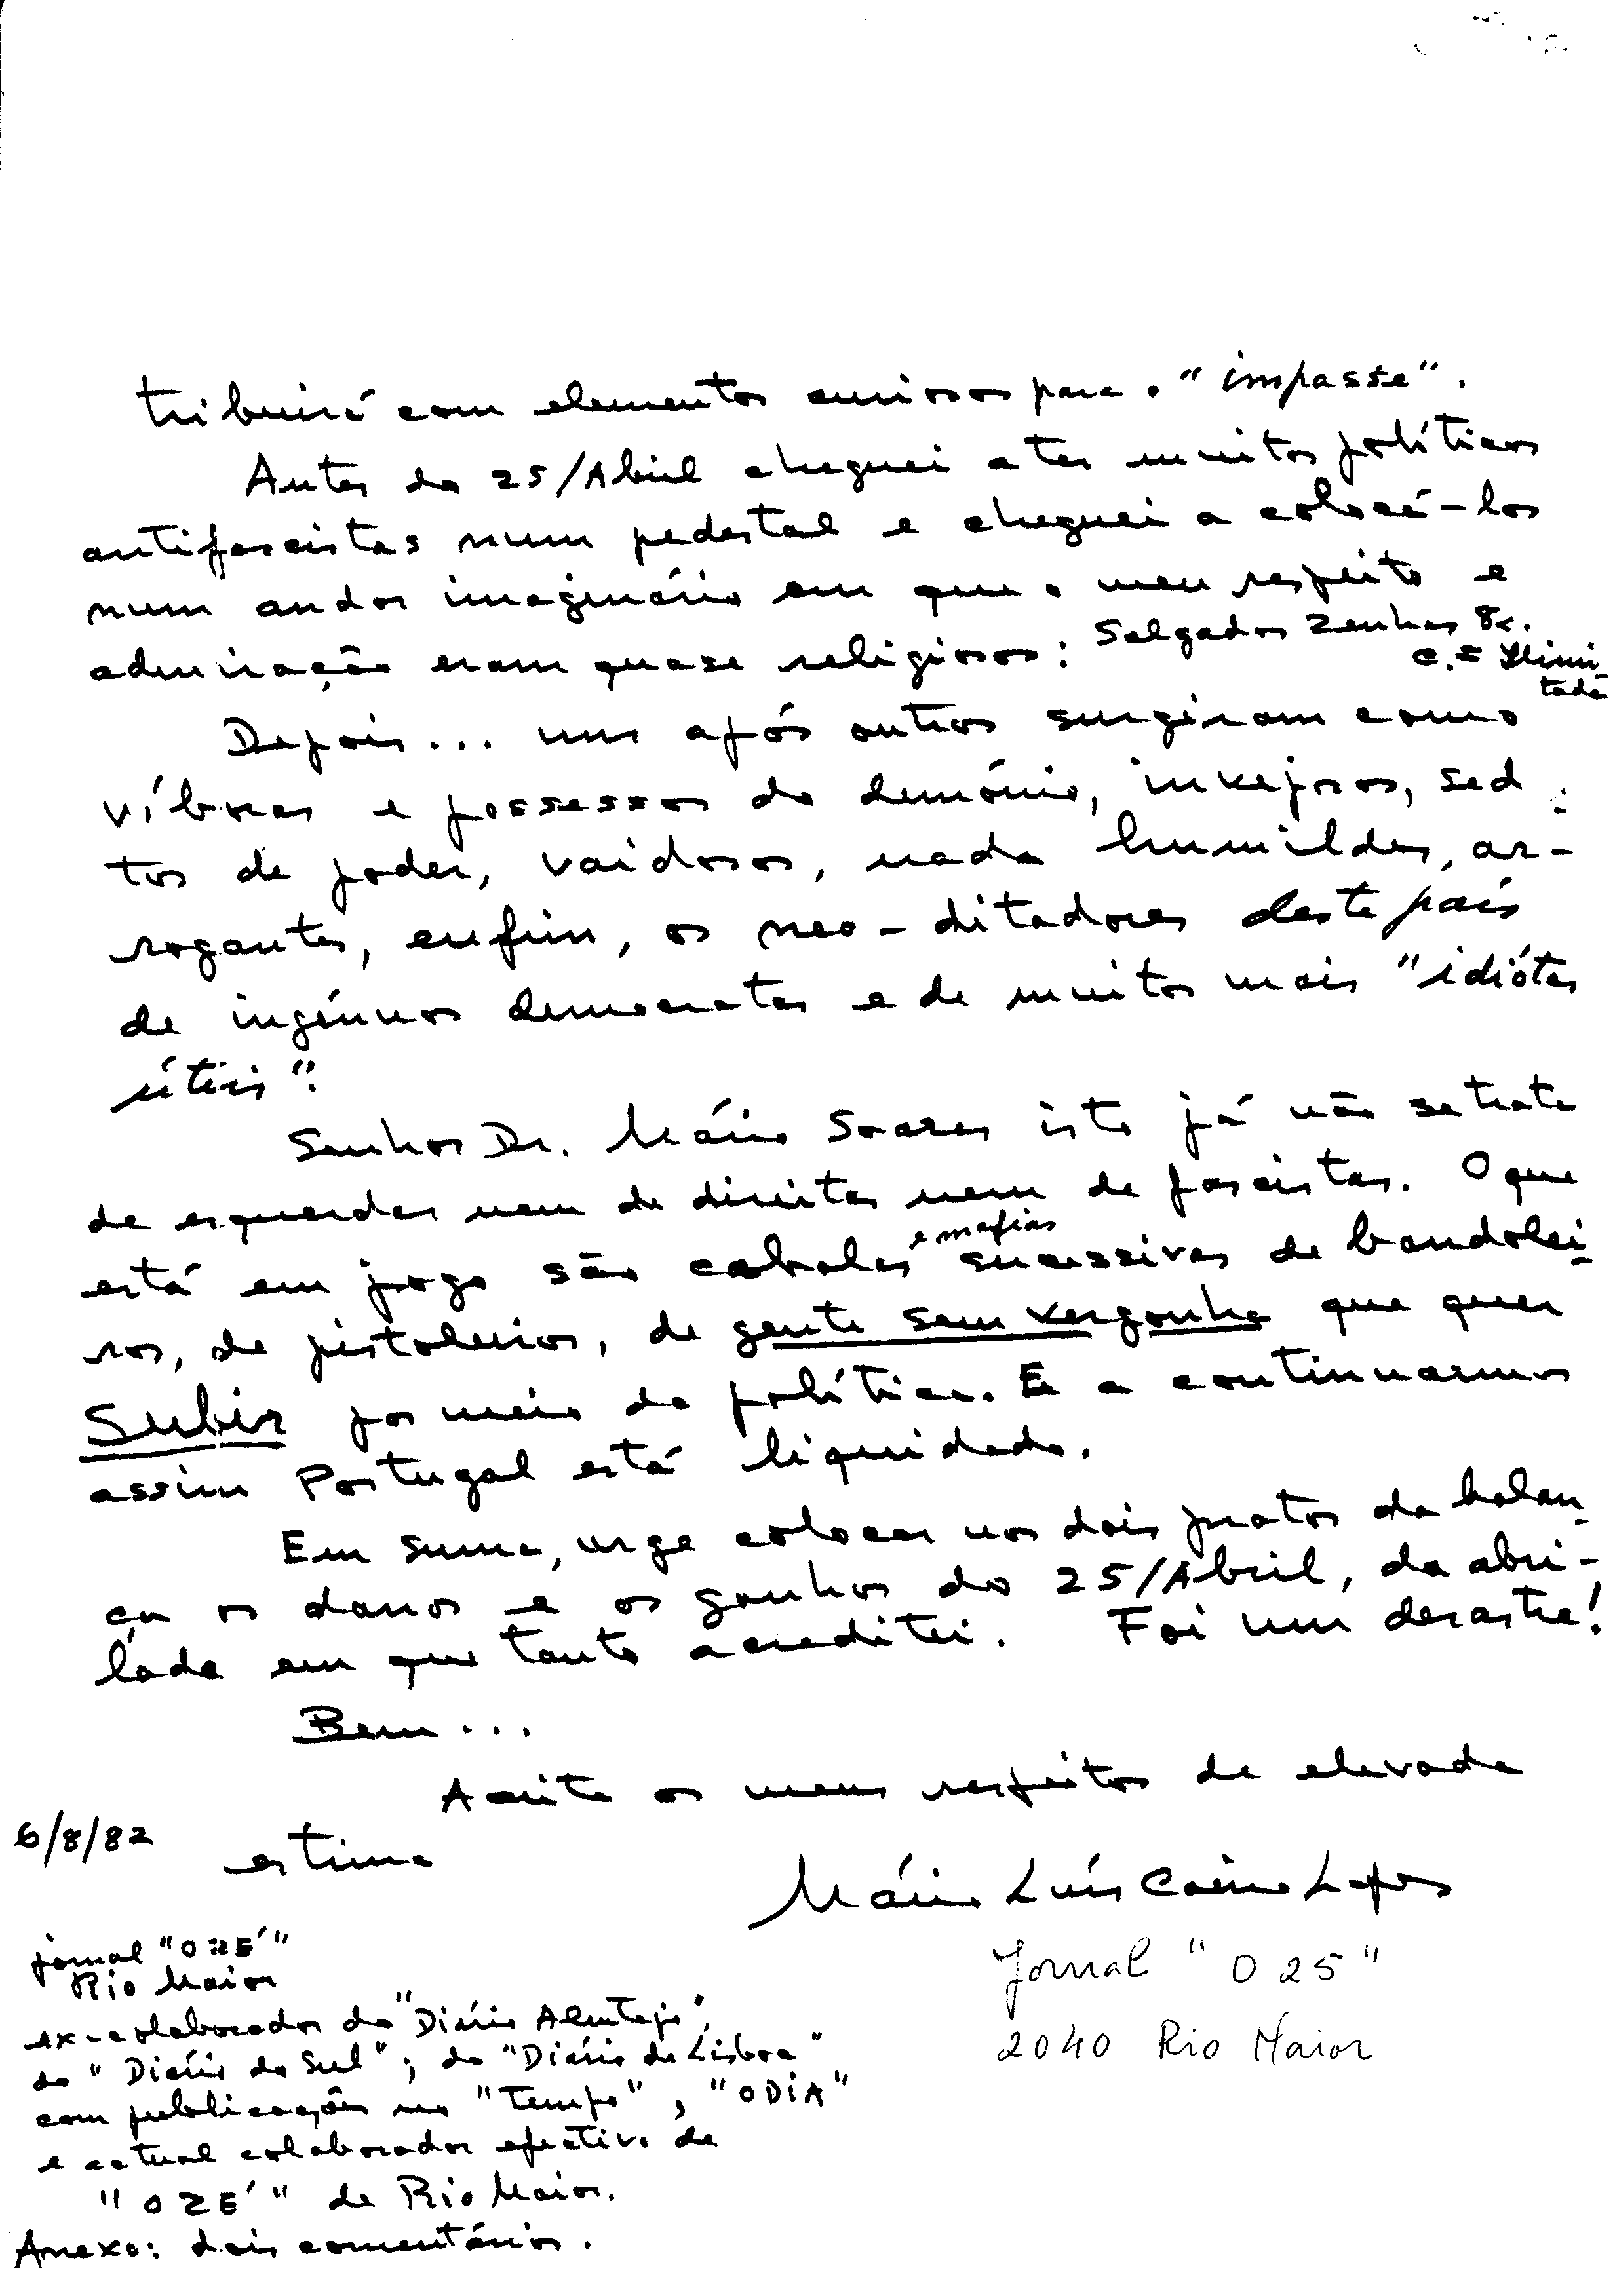 tribuirá com elementos curiosos para o "impasse".
Antes do 25/Abril cheguei a ter muitos políticos
antifascistas num pedestal e cheguei a colocá-los
num andor imaginário em que o meu respeito e
admiração eram quase religiosos: Salgados Zenhas &c.
C.ª Ilimi-
tada
Depois... uns após outros surgiram como
víboras e possessos do demónio, invejosos, sed-
tos de poder, vaidosos, nada humildes, ar-
rogantes, enfim, os neo-ditadores deste país
de ingénuos democratas e de muitos mais "idiótas
úteis".
Senhor Dr. Mário Soares isto já não se trata
de esquerdas nem de direitas nem de fascistas. O que
está em jogo são cabalas e mafias sucessivas de bandolei-
ros, de pistoleiros, de gente sem vergonha que quer
subir por meio da política. E a continuarmos
assim Portugal está liquidado.
Em suma, urge colocar nos dois pratos da balan-
ça os danos e os ganhos do 25/Abril, da abri-
lada em que tanto acreditei. Foi um desastre!
Bem...
Aceite os meus respeitos de elevada
6/8/82 estima
Mário Luís Lopes
jornal "O ZÉ"
Rio Maior
Jornal "O 25"
2040 Rio Maior
ex-colaborador do "Diário Alentejo",
do "Diário do Sul"; do "Diário de Lisboa"
com publicações no "Tempo", "O DiA"
e actual colaborador efectivo de
"O ZÉ" de Rio Maior.
Anexo: dois comentários.